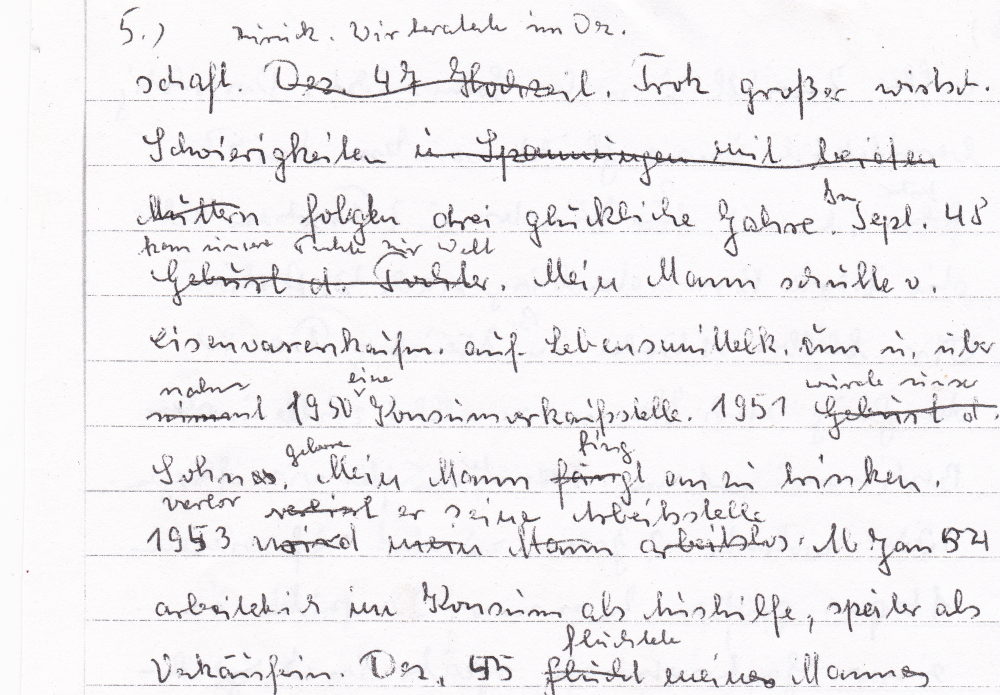 5.) zurück. Wir heirateten im Dez.
schaft. Dez. 47 Hochzeit. Trotz großer wirtsch.
Schwierigkeiten u. Spannungen mit beiden
Im
Müttern folgten drei glückliche Jahre. Sept. 48
kam unsere Tochter zur Welt
Geburt d. Tochter. Mein Mann schulte v.
Eisenwarenkaufm. auf Lebensmittelk. um u. über
nahm eine wurde unser
nimmt 1950 Konsumverkaufsstelle. 1951 Geburt d.
geboren fing
Sohnes. Mein Mann fängt an zu trinken.
verlor verliert er seine Arbeitsstelle
1953 wird mein Mann arbeitslos. Ab Jan 54
arbeite ich im Konsum als Aushilfe, später als
flüchtete
Verkäuferin. Dez. 55 Flucht meines Mannes